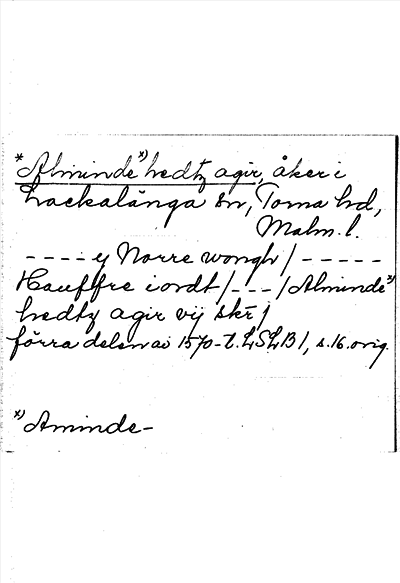 *Alminde *) hedtz agir, åker i
Lackalänga sn, Torna hd,
Malm. l.
- - - - y Norre wongh / - - - - -
Hauffre i ordt / - - - / Alminde *)
hedtz agir vij skr /
förra delen av 1570-t. LSLB 1, s. 16. orig.
*) Aminde-